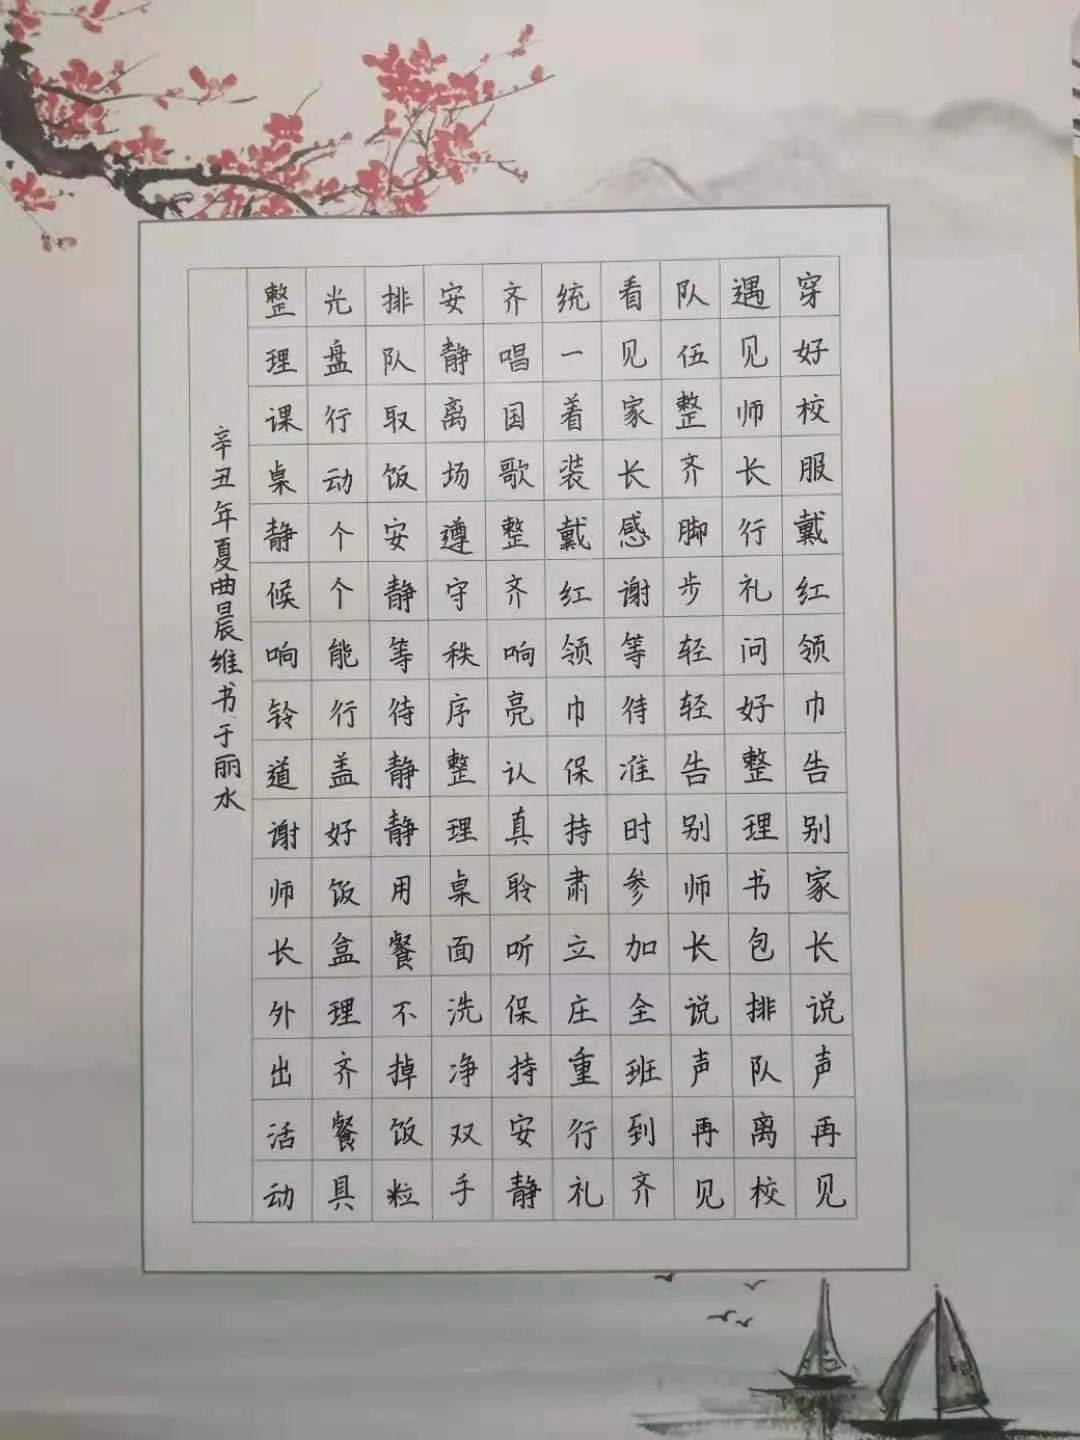 穿好校服戴红领巾告别家长说声再见
遇见师长行礼问好整理书包排队离校
队伍整齐脚步轻轻告别师长说声再见
看见家长感谢等待准时参加全班到齐
统一着装戴红领巾保持肃立庄重行礼
齐唱国歌整齐响亮认真聆听保持安静
安静离场遵守秩序整理桌面洗净双手
排队取饭安静等待静静用餐不掉饭粒
光盘行动个个能行盖好饭盒理齐餐具
整理课桌静候响铃道谢师长外出活动
辛丑年夏曲晨维书于丽水